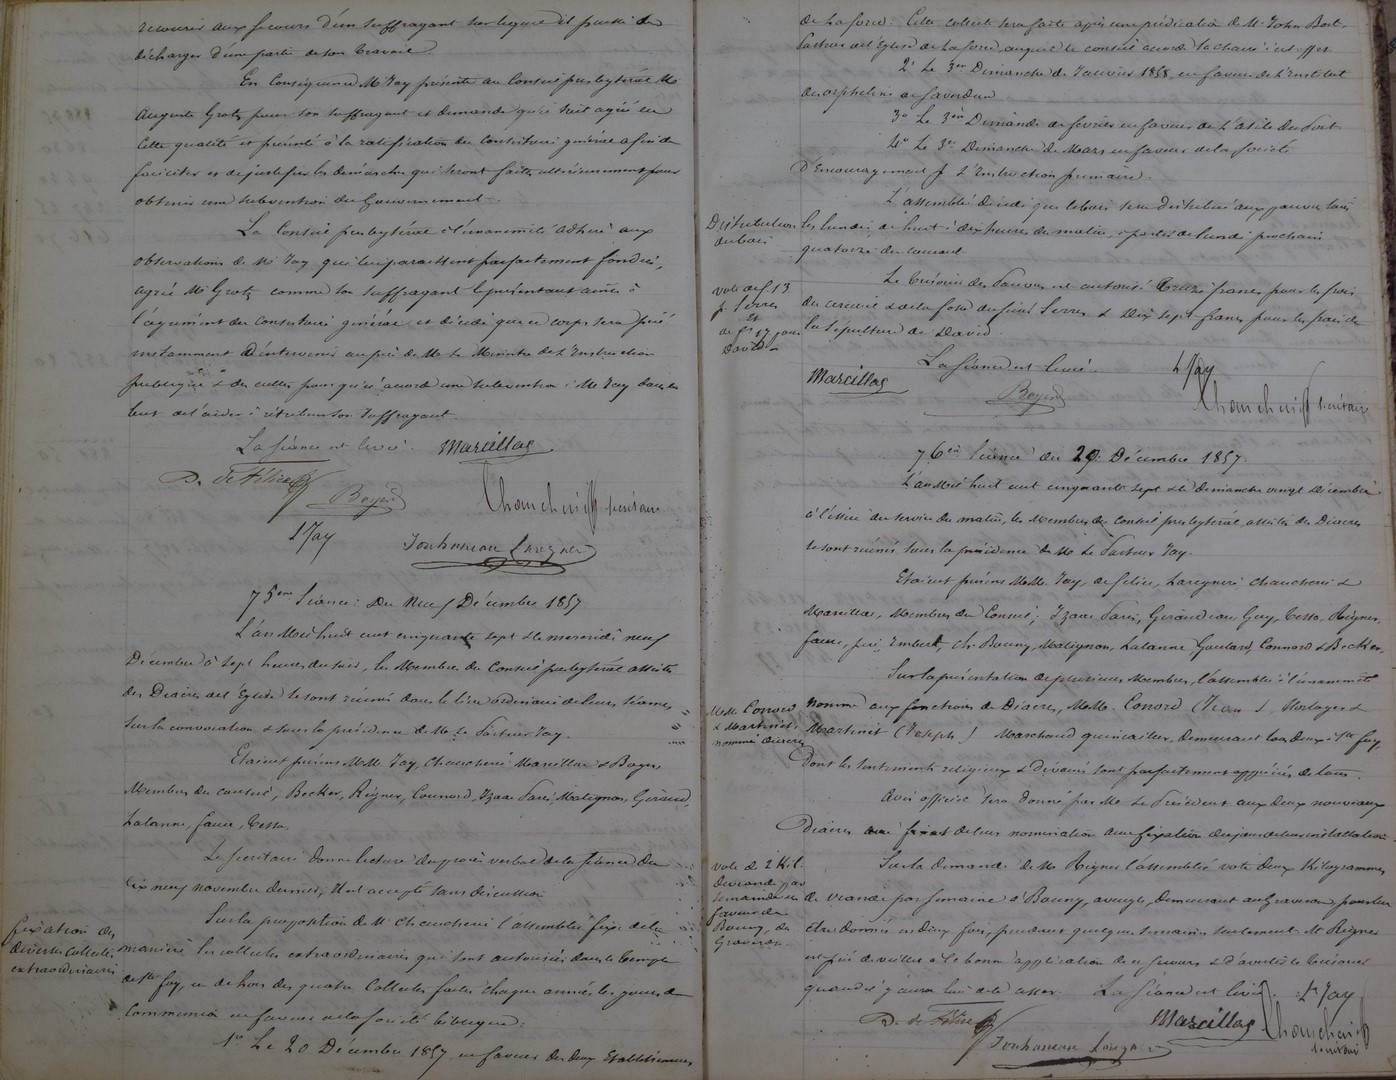 recourir aux secours d'un suffragant sur lequel il puisse se
décharger d'une partie de son travail.
En conséquence Mr Jay présente au Conseil presbytéral Mr
Auguste Grotz pour son suffragant et demande qu'il soit agréé en
cette qualité et présenté à la ratification du Consistoire général afin de
faciliter et de justifier les démarches qui seront faites ultérieurement pour
obtenir une subvention du Gouvernement.
Le Conseil presbytéral à l'unanimité adhère aux
observations de Mr Jay qui lui paraissent parfaitement fondées,
agrée Mr Grotz comme son suffragant le présentant ainsi à
l'agrément du Consistoire général et décide que ce corps sera prié
instamment d'intervenir auprès de Mr le Ministre de l'Instruction
publique & des cultes pour qu'il accorde une subvention à Mr Jay dans le
but de l'aider à rétribuer son suffragant.
La séance est levée. Marcillas
D. de Félice
Boyer Chaucherie secrétaire
L Jay
Jouhaneau Laregnere
75eme Séance du Neuf Décembre 1857
L'an Mil huit cent cinquante sept & le mercredi neuf
Décembre à sept heures du soir, les Membres du Conseil presbytéral assistés
des Diacres de l'Eglise se sont réunis dans le lieu ordinaire de leurs séances,
sur la convocation & sous la présidence de Mr le Pasteur Jay.
Etaient présens MM. Jay, Chaucherie Marcillas & Boyer
Membres du conseil, Becker, Reigner, Connord, Izaac Paris, Matignon, Giraud,
Lalanne, faure, Testa.
Le Secrétaire donne lecture du procès verbal de la séance du
dix neuf novembre dernier, il est accepté sans discussion
fixation de
diverses Collectes
extraordinaires
Sur la proposition de Mr Chaucherie l'assemblée fixe de la
manière les collectes extraordinaires qui sont autorisées dans le temple
de Ste foy, en dehors des quatre Collectes faites chaque année les jours de
Communion en faveur de la Société biblique:
1° Le 20 Décembre 1857 en faveur des deux Etablissemens
de Laforce. Cette collecte sera faite après une prédication de Mr John Bost,
Pasteur de l'Eglise de Laforce, auquel le conseil accorde la chaire à cet effet
2° Le 3me Dimanche de Janvier 1858, en faveur de l'Institut
des orphelins de Saverdun
3° Le 3me Dimanche de février en faveur de l'Asile du Port
4° Le 3me Dimanche de Mars en faveur de la Société
d'Encouragement p. l'Instruction primaire.
Distribution
du bois
L'assemblée décide que le bois sera distribué aux pauvres tous
les lundis de huit à dix heures du matin, à partir de lundi prochain
quatorze du courant
vote de f. 13
p. Serres
Et
de f. 17 pour
David
Le trésorier des Pauvres est autorisé Treize francs pour les frais
du cercueil & de la fosse du Serres & Dix sept francs pour les frais de
la sépulture de David.
La séance est levée. L Jay
Marcillas
Boyer Chaucherie secrétaire
76eme Séance du 20 Décembre 1857.
L'an Mil huit cent cinquante sept & le dimanche vingt Décembre
à l'issue du service du matin, les Membres du Conseil presbytéral assistés des Diacres
se sont réunis sous la présidence de Mr le Pasteur Jay.
Etaient présens MM. Jay, de felice, Laregnere Chaucherie &
Marcillas, Membres du Conseil; Izaac Paris, Geraudeau, Guy, Testa, Reigner,
faure, Imbert, Ch. Bouny, Matignon, Lalanne, Goulard, Connord & Becker.
MM. Conord
& Martinet
nommés diacres
Sur la présentation de plusieurs Membres, l'assemblée à l'unanimité
nomme aux fonctions de Diacres, MM. Conord (Jean), Horloger &
Martinet (Joseph) Marchand quincailler, demeurant tous deux à Ste foy
Dont les sentiments religieux & dévoués sont parfaitement appréciés de tous.
Avis officiel sera donné par Mr le Président aux deux nouveaux
Diacres de leur nomination avec fixation du jour de leur installation
vote de 2 Kil.
de viande par
semaine en
faveur de
Bouny, du
Graveron
Sur la demande de Mr Reigner l'assemblée vote deux Kilogrammes
de viande par semaine à Bouny, aveugle, demeurant au Graveron, pour lui
être donnés en deux fois, pendant quelques semaines seulement. Mr Reigner
est prié de veiller à la bonne application de ce secours & d'avertir le trésorier
quand il y aura lieu de le cesser. La séance est levée. L Jay
D. de Félice Marcillas Chaucherie
secrétaire
Jouhaneau Laregnere